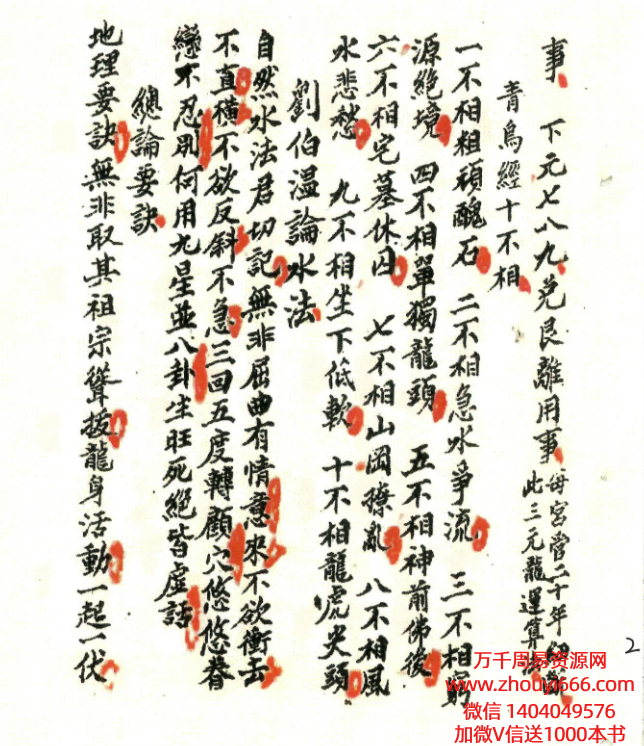 事 下元七八九兌艮離用事 每宮管二十年
此三元龍運算
青烏經十不相
一不相粗頑醜石 二不相急水爭流 三不相窮
源絕境 四不相單獨龍頭 五不相神前佛後
六不相宅墓休囚 七不相山岡撩亂 八不相風
水悲愁 九不相坐下低軟 十不相龍虎尖頭
劉伯溫論水法
自然水法君切記無非屈曲有情意來不欲衝去
不直橫不欲反斜不急三回五度轉顧穴悠悠眷
戀不忍別何用九星並八卦生旺死絕皆虛話
總論要訣
地理要訣無非取其祖宗聳拔龍身活動一起一伏
2
万千周易资源网
www.zhouyi666.com
微信 1404049576
加微V信送1000本书